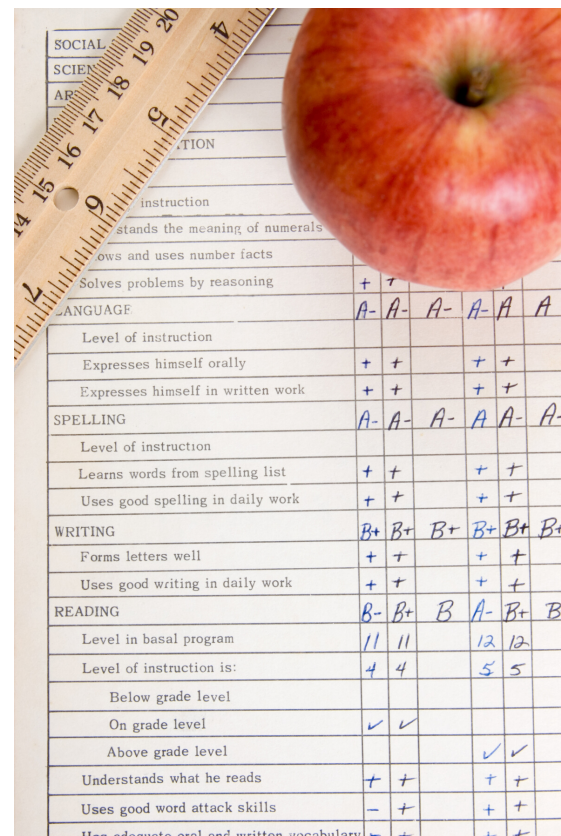 20
19
4
18
17
5
16
15
6
14
7
SOCIAL
instruction
the meaning of numerals
and uses number facts
Solves problems by reasoning + +
LANGUAGE A- A- A- A- A A
Level of instruction
Expresses himself orally + + + +
Expresses himself in written work + + + +
SPELLING A- A- A- A A- A-
Level of instruction
Learns words from spelling list + + + +
Uses good spelling in daily work + + + +
WRITING B+ B+ B+ B+ B+ B+
Forms letters well + + + +
Uses good writing in daily work + + + +
READING B- B+ B A- B+ B
Level in basal program 11 11 12 12
Level of instruction is: 4 4 5 5
Below grade level
On grade level ✓ ✓
Above grade level ✓ ✓
Understands what he reads + + + +
Uses good word attack skills - + + +
oral and written vocabulary